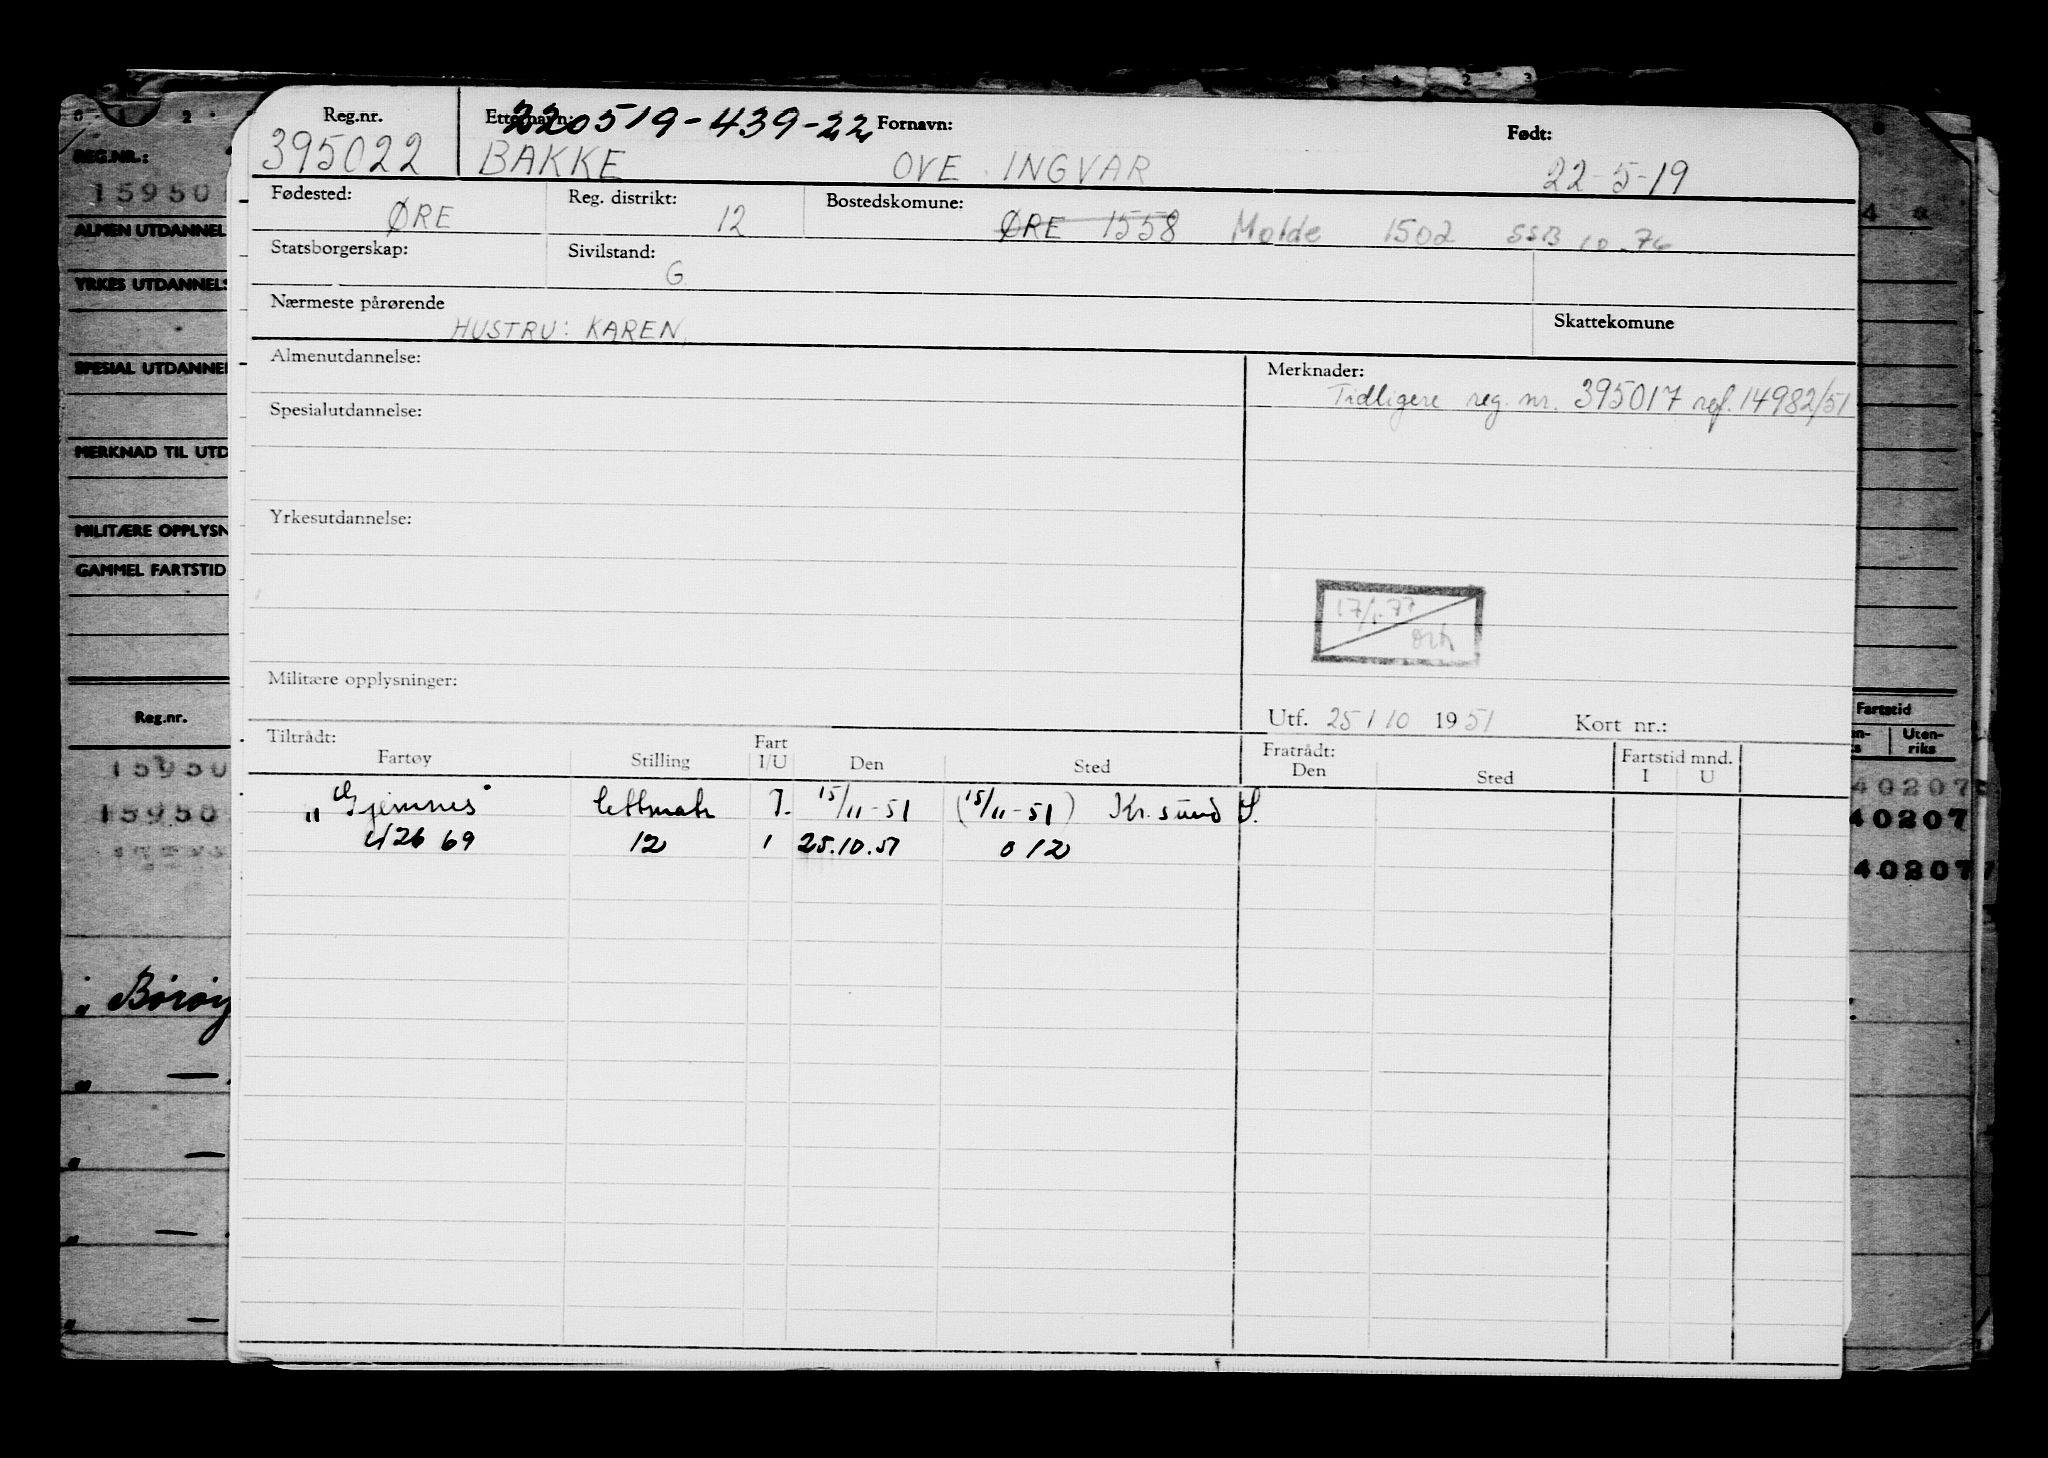 Reg.nr. Etternavn: 220519-439-22 Fornavn: Født:
395022 BAKKE OVE INGVAR 22-5-19
Fødested: ØRE Reg. distrikt: 12 Bostedskomune: ØRE 1558 Molde 1502 SSB 10.76
Statsborgerskap: Sivilstand: G
Nærmeste pårørende HUSTRU: KAREN, Skattekomune
Almenutdannelse: Merknader:
Tidligere reg. nr. 395017 ref. 14982/51
Spesialutdannelse:
Yrkesutdannelse:
17/1-77
Militære opplysninger:
Utf. 25/10 1951 Kort nr.:
Tiltrådt: Fart Fratrådt: Fartstid mnd.
Fartøy Stilling I/U Den Sted Den Sted I U
"Gjemnes" lettmatr I. 15/11-51 (15/11-51) Kr.sund S.
42669 12 1 25.10.51 012
0 1 2
REG.NR.:
15950
ALMEN UTDANNEL
YRKES UTDANNELS
SPESIAL UTDANNEL
MERKNAD TIL UTD
MILITÆRE OPPLYSN
GAMMEL FARTSTID
Reg.nr.
15950
15950
" Börøy
" —
" —
" —
" —
2 3
4
Fartstid
Uten-
riks
40207
40207
40207